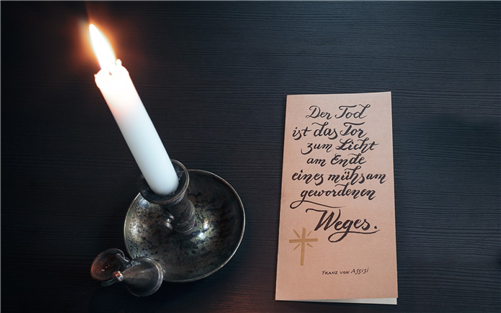 Der Tod
ist das Tor
zum Licht
am Ende
eines mühsam
gewordenen
Weges.
FRANZ VON ASSISI